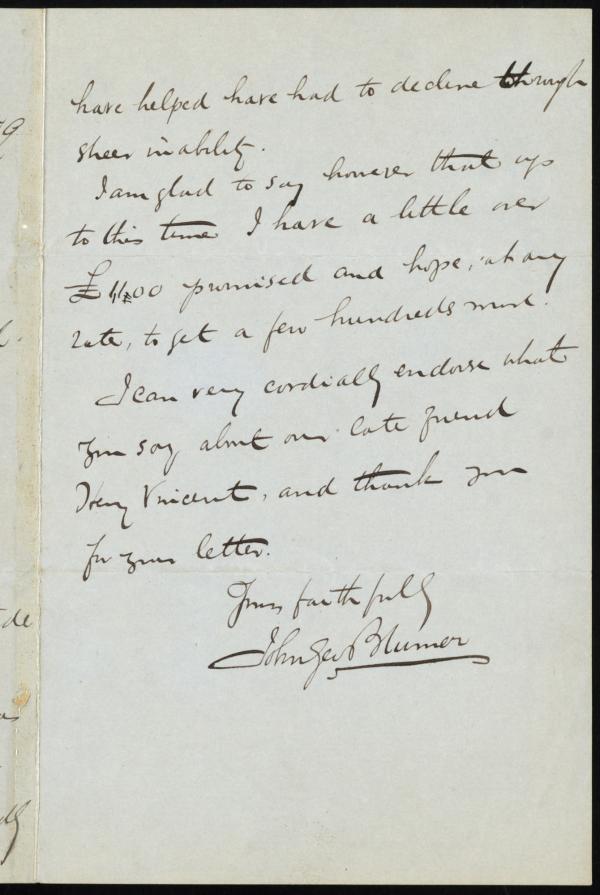 have helped have had to decline through
sheer inability.
I am glad to say however that up
to this time I have a little over
£1400 promised and hope, at any
rate, to get a few hundreds more.
I can very cordially endorse what
you say about our late friend
Henry Vincent, and thank you
for your letter.
Yours faithfully
John Geo Blumer